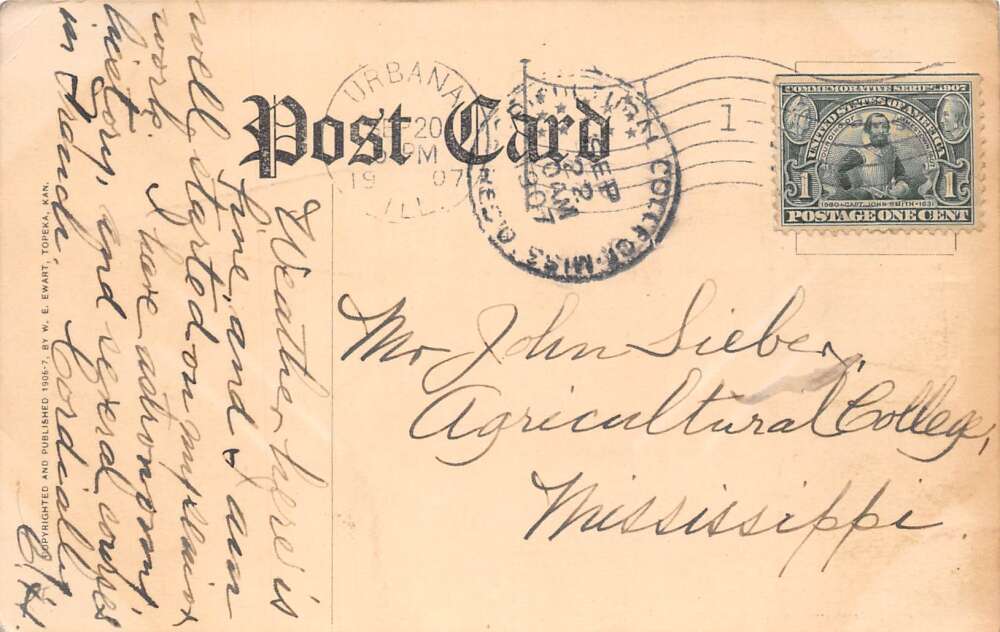 Post Card
URBANA
SEP 20
PM
1907
ILL.
AGRICULTURAL COLLEGE MISS.
SEP
22
10AM
1907
REC'D.
1
COMMEMORATIVE SERIES 1907
UNITED STATES OF AMERICA
FOUNDING OF JAMESTOWN
1580 CAPT. JOHN SMITH 1631
1 POSTAGE ONE CENT 1
Mr John Sieber,
Agricultural College,
Mississippi
Weather here is
fine, and I am
well started on my senior
work. I have astronomy
history, and several courses
in French. Cordially
C.H.
COPYRIGHTED AND PUBLISHED 1906-7, BY W. E. EWART, TOPEKA, KAN.